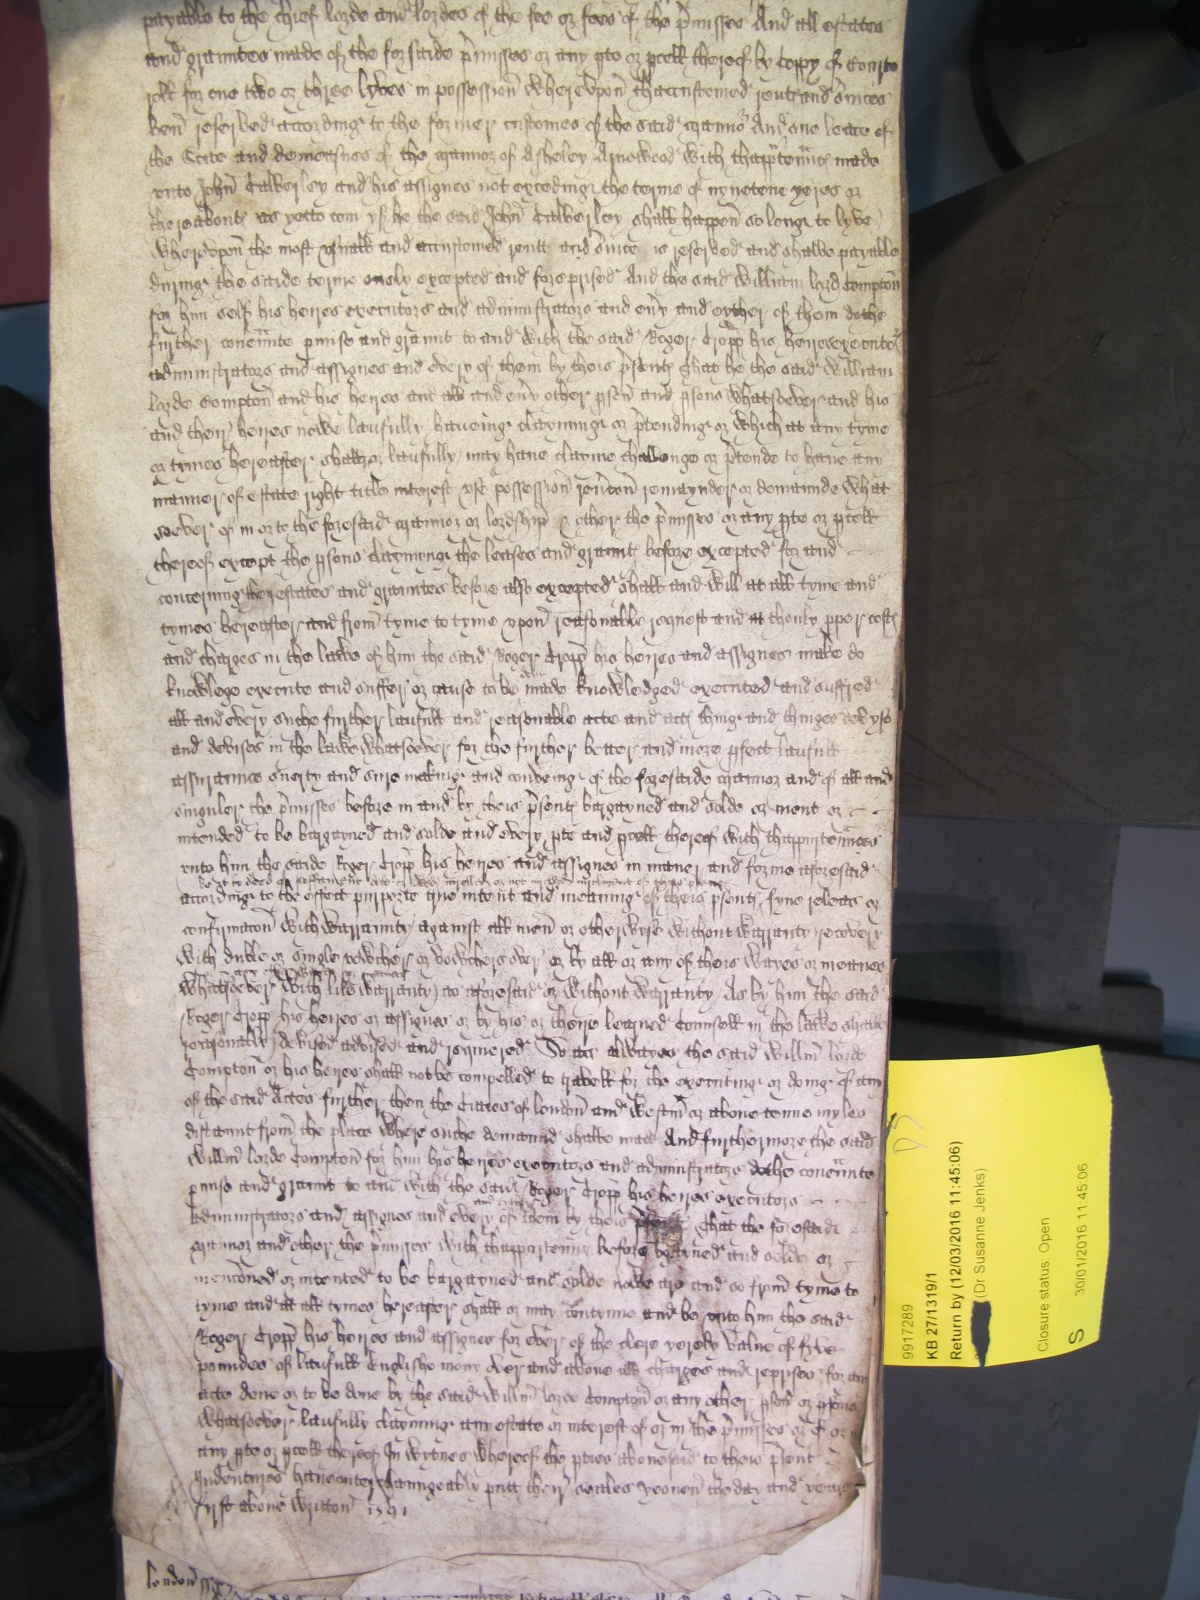 payable to the chief lorde and lordes of the fee or fees of the p̃misses And all estates
and grauntes made of the forsaide p̃misses or any pte or pcell thereof by Coppy of Courte
roll for one two or three lyves in possession whereupon thaccustomed rent and s̃vices
ben reserved according to the former customes of the said mannor And one lease of
the Scite and demeasnes of the mannor of Asheley Arnewood with thapp̃tenn̄cs made
vnto John Calverley and his assignes not exceding the terme of nynetene yeres or
thereabouts as yet to com yf he the said John Calverley shall happen so longe to lyve
whereupon the most vsuall and accustomed rentt and s̃vice is reserved and shalbe payable
during the saide terme onely excepted and forsprised And the said William lord Compton
for him self his heires executors and administrators and eñy and eyther of them dothe
further coven̄nte p̃mise and graunt to and with the said Roger Cropp his heires executors
administrators and assignes and every of them by theis p̃sents That he the said William
lorde Compton and his heires and all and eñy other pson and psons whatsoever and his
and their heires nowe laufully haveing clayming or p̃tending or which at any tyme
or tymes hereafter shall or laufully may have clayme challenge or p̃tende to have any
manner of estate right title interest vse possession rev̄con remaynder or demaunde what
soever of in or to the foresaid mannor or lordship & other the p̃misses or any pte or pcell
thereof except the psons clayminge the leases and graunts before excepted for and
concerning their estates and grauntes before also excepted shall and will at all tyme and
tymes hereafter and from tyme to tyme vpon reasonable request and at thonly pper costs
and charges in the lawe of him the said Roger Cropp his heires and assignes make do
knowlege execute and suffer or cause to be made knowledged executed and suffred
all and every suche further laufull and reasonable acte and acts thing and thinges devyse
and devises in the lawe whatsoever for the further better and more pfect laufull
assuraunce suerty and sure making and conveing of the foresaide mannor and of all and
singuler the p̃misses before in and by theis p̃sents bargayned and solde or ment or
intended to be bargayned and solde and every pte and pcell thereof with thappurtenn̄ces
vnto him the saide Roger Cropp his heires and assignes in maner and forme aforesaid
be it by deed or
according to the effect purporte true intent and meaning of theis p̃sents fyne releas or
confirmacon with warranty against all men or otherwyse without warranty recovery
with duble or single vowcher or vowchers over or by all or any of theis wayes or meanes
whatsoever with like warranty as aforesaid or without warranty As by him the said
Roger Cropp his heires or assignes or by his or theire learned Counsell in the lawe shalbe
reasonably devised advised and required So as alwayes the said Willm̄ lorde
Compton or his heires shall not be compelled to travell for the executing or doing of any
of the said Actes further then the Citties of london and Westm̄ or above tenne myles
distaunt from the place where suche demaund shalbe made And furthermore the said
Willm̄ lorde Compton for him his heires executors and administrators dothe coven̄nte
p̃mise and graunt to and with the said Roger Cropp his heires executors
Administrators and assignes and every of them by theis p̃sents That the foresaide
mannor and other the p̃misses with thappurtenn̄cs before bargayned and solde or
mencioned or intented to be bargayned and solde nowe are and so from tyme to
tyme and at all tymes hereafter shall or may contynue and be vnto him the said
Roger Cropp his heires and assignes for ever of the clere yerely value of fyve
poundes of laufull Englishe mony over and above all charges and reprises for any
acte done or to be done by the said Willm̄ lorde Compton or any other pson or psons
whatsoever laufully clayming any estate or interest of or in the p̃misses or of or in
any pte or pcell thereof In wytnes whereof the pties abovesaid to theis p̃sent
Indentures have enterchaungeably putt their seales yeoven the day and yeare
first above written 1591
london ss
9917289
KB 27/1319/1
Return by (12/03/2016 11:45:06)
(Dr Susanne Jenks)
Closure status Open
S
30/01/2016 11:45:06
D5